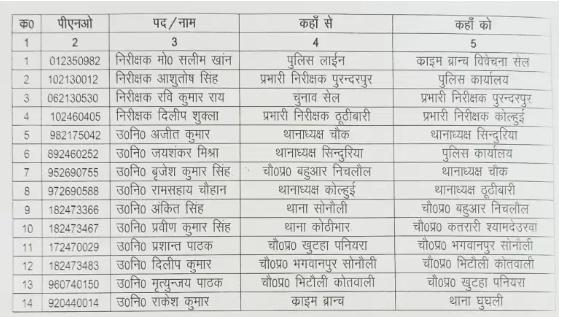 क0 पीएनओ पद/नाम कहाँ से कहाँ को
1 2 3 4 5
1 012350982 निरीक्षक मो0 सलीम खांन पुलिस लाईन काइम ब्रान्च विवेचना सेल
2 102130012 निरीक्षक आशुतोष सिंह प्रभारी निरीक्षक पुरन्दरपुर पुलिस कार्यालय
3 062130530 निरीक्षक रवि कुमार राय चुनाव सेल प्रभारी निरीक्षक पुरन्दरपुर
4 102460405 निरीक्षक दिलीप शुक्ला प्रभारी निरीक्षक ठूठीबारी प्रभारी निरीक्षक कोल्हुई
5 982175042 उ0नि0 अजीत कुमार थानाध्यक्ष चौक थानाध्यक्ष सिन्दुरिया
6 892460252 उ0नि0 जयशंकर मिश्रा थानाध्यक्ष सिन्दुरिया पुलिस कार्यालय
7 952690755 उ0नि0 बृजेश कुमार सिंह चौ0प्र0 बहुआर निचलौल थानाध्यक्ष चौक
8 972690588 उ0नि0 रामसहाय चौहान थानाध्यक्ष कोल्हुई थानाध्यक्ष ठूठीबारी
9 182473366 उ0नि0 अंकित सिंह थाना सोनौली चौ0प्र0 बहुआर निचलौल
10 182473467 उ0नि0 प्रवीण कुमार सिंह थाना कोठीभार चौ0प्र0 कतरारी श्यामदेउरवा
11 172470029 उ0नि0 प्रशान्त पाठक चौ0प्र0 खुटहा पनियरा चौ0प्र0 भगवानपुर सोनौली
12 182473483 उ0नि0 दिलीप कुमार चौ0प्र0 भगवानपुर सोनौली चौ0प्र0 भिटौली कोतवाली
13 960740150 उ0नि0 मृत्युन्जय पाठक चौ0प्र0 भिटौली कोतवाली चौ0प्र0 खुटहा पनियरा
14 920440014 उ0नि0 राकेश कुमार काइम ब्रान्च थाना घुघली